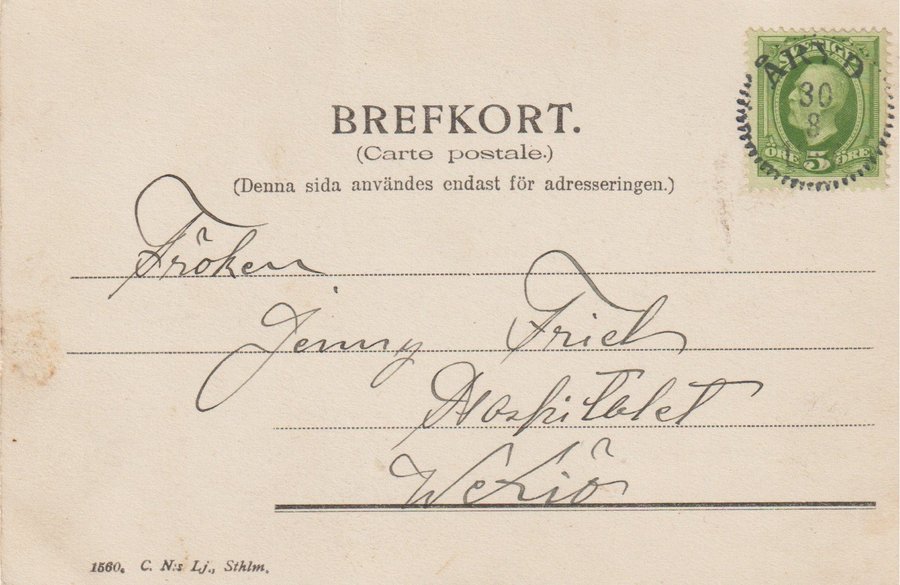 SVERIGE
ÅRYD
30
8
ÖRE 5 ÖRE
BREFKORT.
(Carte postale.)
(Denna sida användes endast för adresseringen.)
Fröken
Jenny
Hospitalet
Wexiö
1560. C. N:s Lj., Sthlm.